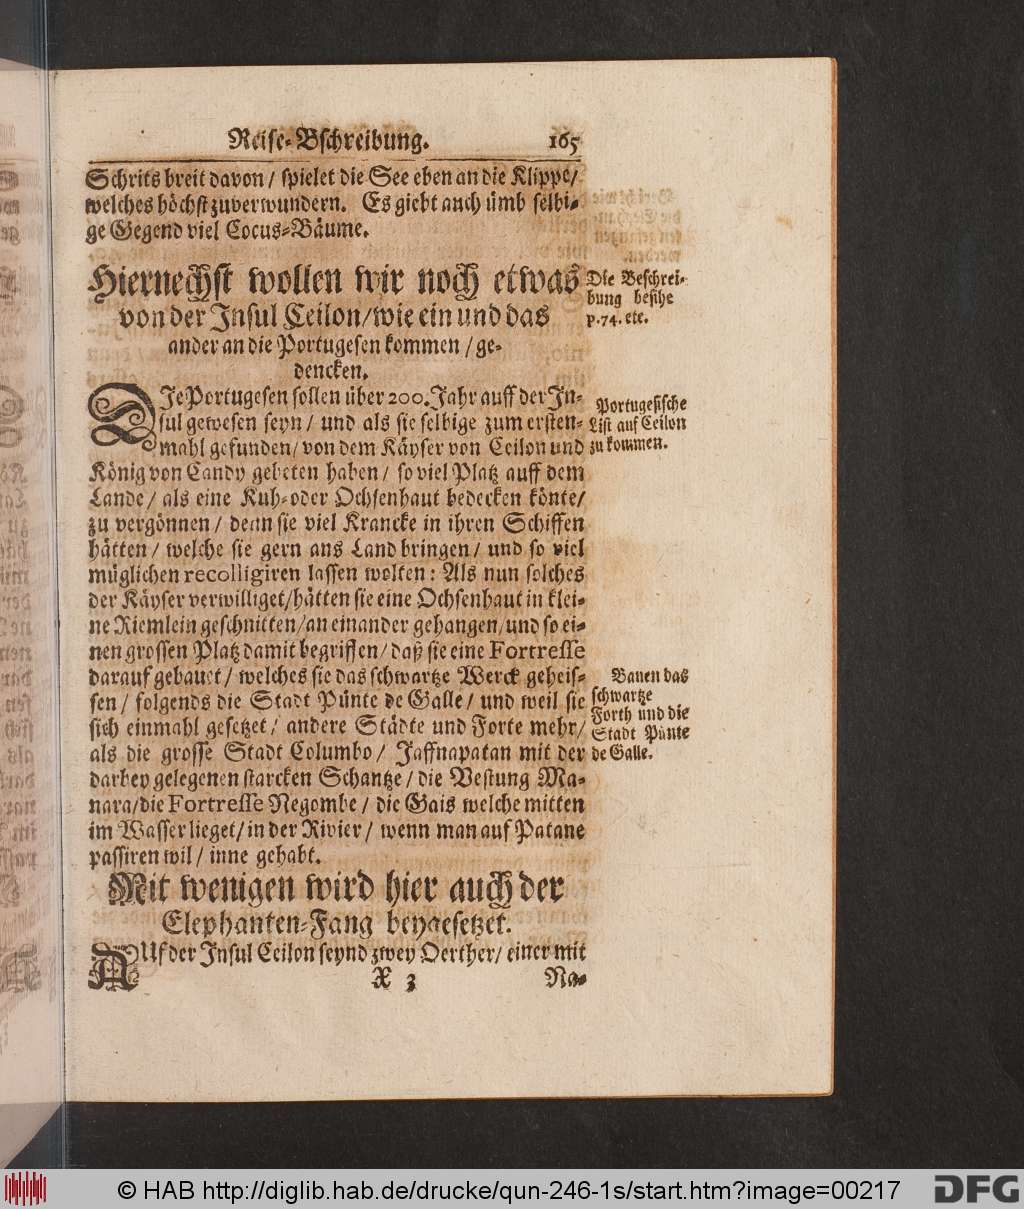 Reise-Bschreibung. 165
Schrits breit davon / spielet die See eben an die Klippe /
welches höchst zuverwundern. Es giebt auch ümb selbi-
ge Gegend viel Cocus-Bäume.
Hiernechst wollen wir noch etwas
von der Insul Ceilon / wie ein und das
ander an die Portugesen kommen / ge-
dencken.
Die Beschrei-
bung besihe
p. 74. etc.
DIe Portugesen sollen über 200. Jahr auff der In-
sul gewesen seyn / und als sie selbige zum ersten-
mahl gefunden / von dem Käyser von Ceilon und
König von Candy gebeten haben / so viel Platz auff dem
Lande / als eine Kuh- oder Ochsenhaut bedecken könte /
zu vergönnen / denn sie viel Krancke in ihren Schiffen
hätten / welche sie gern ans Land bringen / und so viel
müglichen recolligiren lassen wolten: Als nun solches
der Käyser verwilliget / hätten sie eine Ochsenhaut in klei-
ne Riemlein geschnitten / an einander gehangen / und so ei-
nen grossen Platz damit begriffen / daß sie eine Fortresse
darauf gebauet / welches sie das schwartze Werck geheis-
sen / folgends die Stadt Pünte de Galle / und weil sie
sich einmahl gesetzet / andere Städte und Forte mehr /
als die grosse Stadt Columbo / Jaffnapatan mit der
darbey gelegenen starcken Schantze / die Vestung Ma-
nara / die Fortresse Negombe / die Gais welche mitten
im Wasser lieget / in der Rivier / wenn man auf Patane
passiren wil / inne gehabt.
Portugesische
List auf Ceilon
zu kommen.
Bauen das
schwartze
Forth und die
Stadt Pünte
de Galle.
Mit wenigen wird hier auch der
Elephanten-Fang beygesetzet.
AUf der Insul Ceilon seynd zwey Oerther / einer mit
X 3 Na-
© HAB http://diglib.hab.de/drucke/qun-246-1s/start.htm?image=00217
DFG